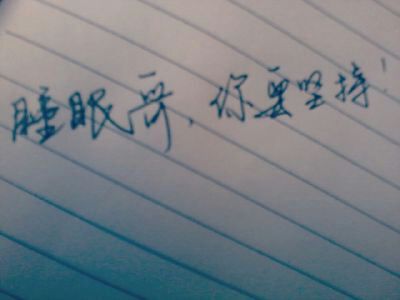 睡眠哥，你要坚持！